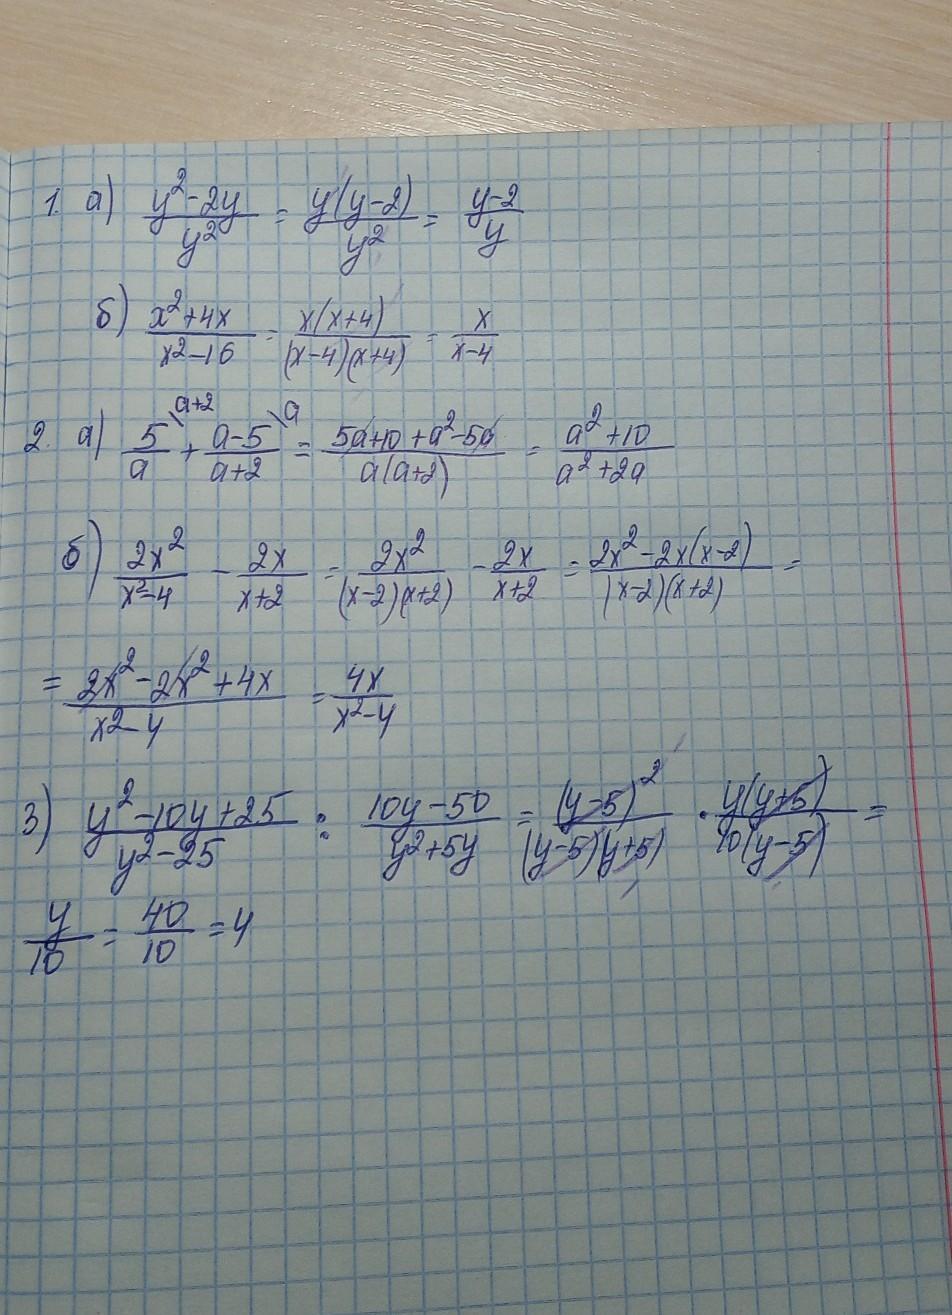 1. а) y²-2y/y² = y(y-2)/y² = y-2/y
б) x²+4x/x²-16 = x(x+4)/(x-4)(x+4) = x/x-4
2. а) 5\a+2/a + a-5\a/a+2 = 5a+10+a²-5a/a(a+2) = a²+10/a²+2a
б) 2x²/x²-4 - 2x/x+2 = 2x²/(x-2)(x+2) - 2x/x+2 = 2x²-2x(x-2)/(x-2)(x+2) =
= 2x²-2x²+4x/x²-4 = 4x/x²-4
3) y²-10y+25/y²-25 : 10y-50/y²+5y = (y-5)²/(y-5)(y+5) · y(y+5)/10(y-5) =
y/10 = 40/10 = 4